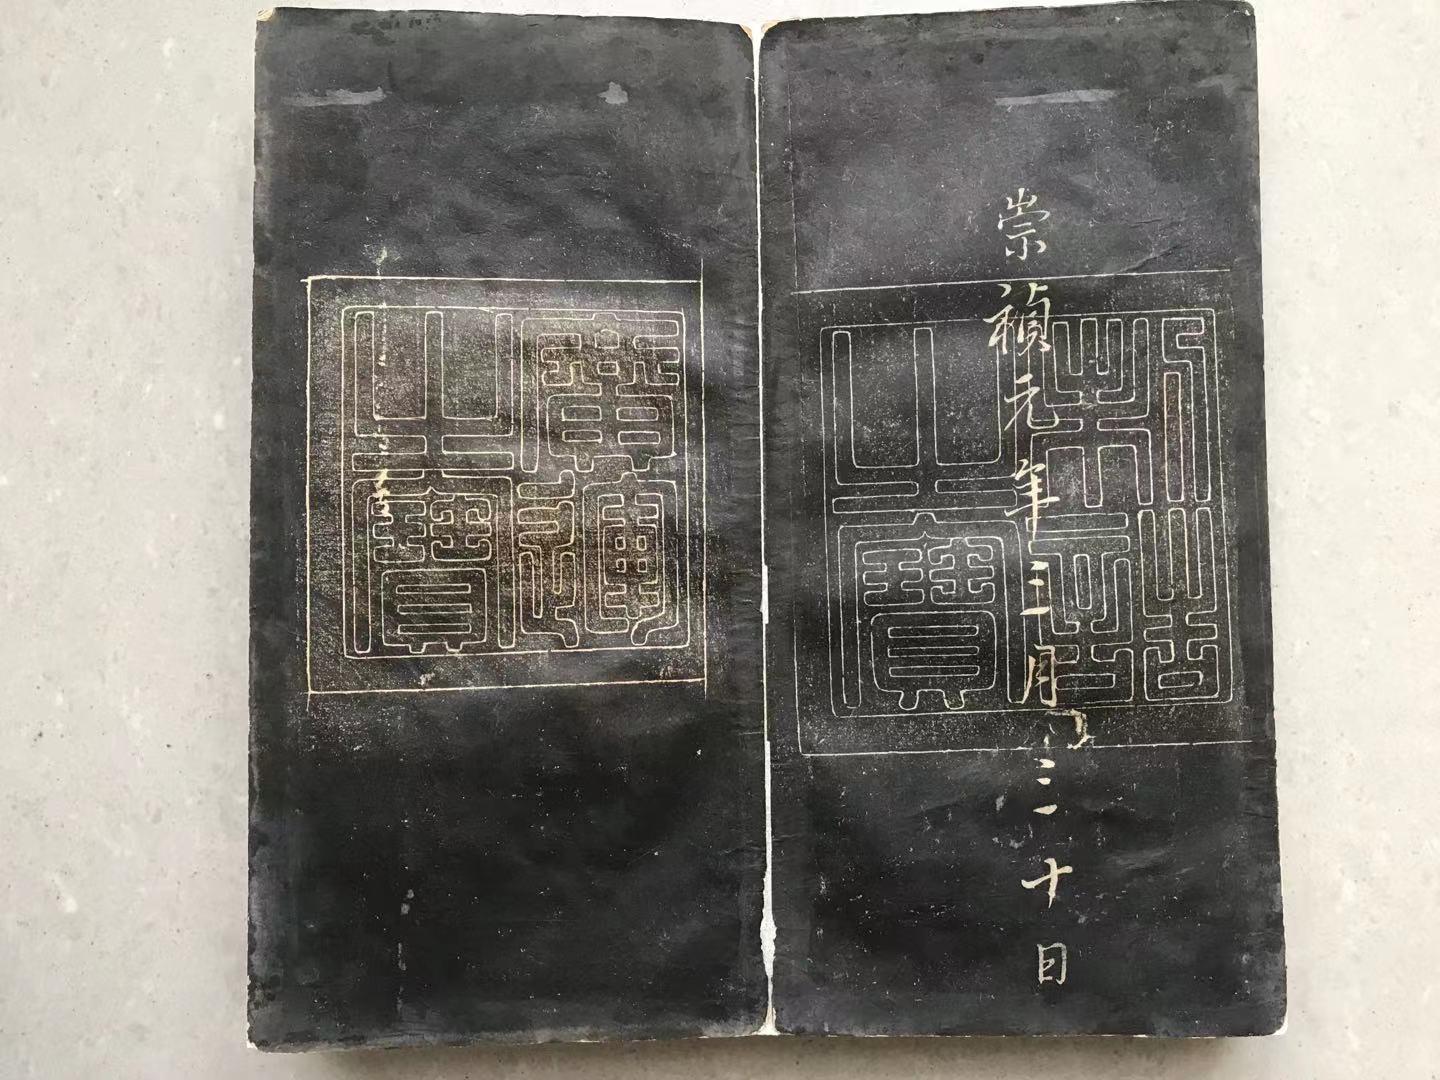 崇禎元年三月三十日
制誥之寶
廣運之寶